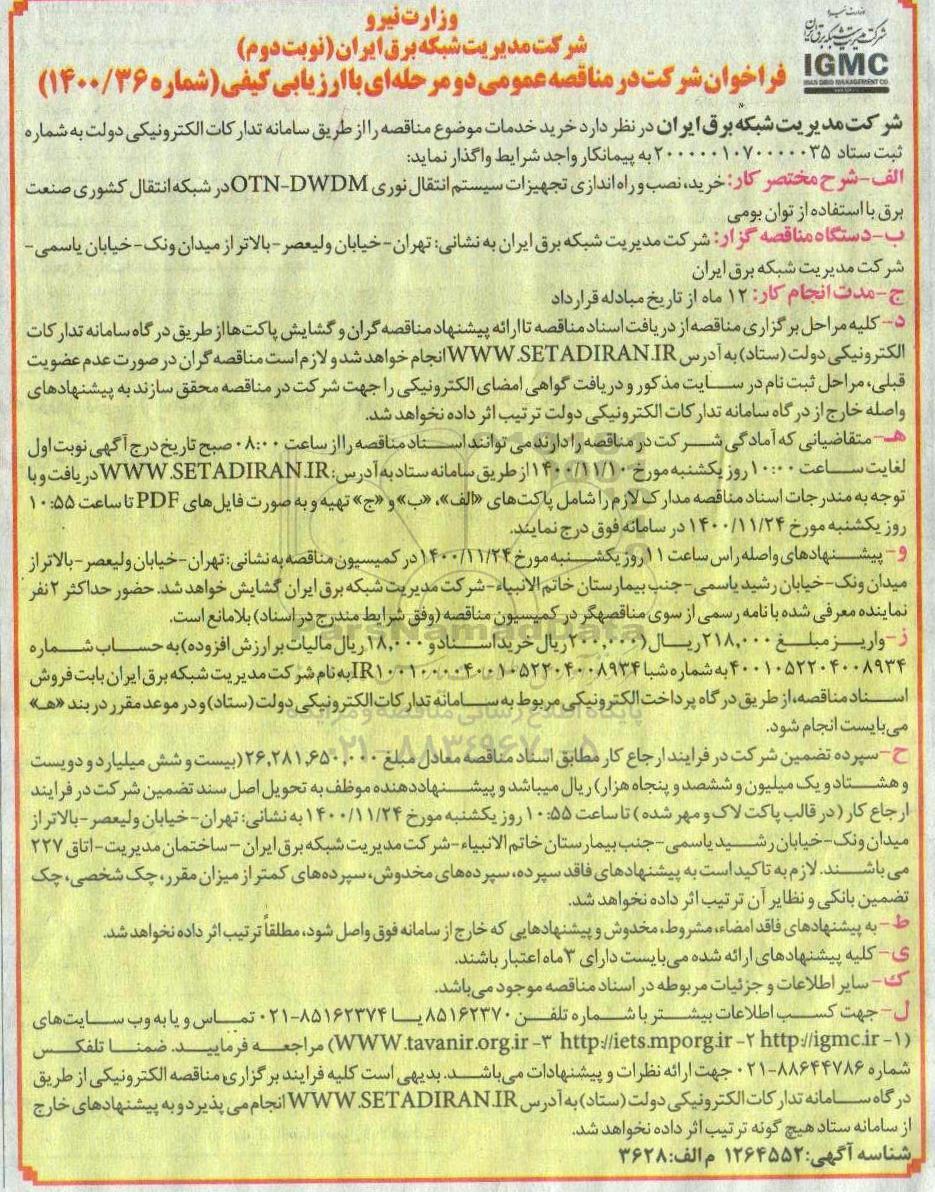 وزارت نیرو
شرکت مدیریت شبکه برق ایران (نوبت دوم)
فراخوان شرکت در مناقصه عمومی دو مرحله‌ای با ارزیابی کیفی (شماره ۱۴۰۰/۳۶)
وزارت نیرو
شرکت مدیریت شبکه برق ایران
IGMC
IRAN GRID MANAGEMENT CO.
شرکت مدیریت شبکه برق ایران در نظر دارد خرید خدمات موضوع مناقصه را از طریق سامانه تدارکات الکترونیکی دولت به شماره
ثبت ستاد ۲۰۰۰۰۰۱۰۷۰۰۰۰۰۳۵ به پیمانکار واجد شرایط واگذار نماید:
الف-شرح مختصر کار: خرید، نصب و راه اندازی تجهیزات سیستم انتقال نوری OTN-DWDM در شبکه انتقال کشوری صنعت
برق با استفاده از توان بومی
ب-دستگاه مناقصه گزار: شرکت مدیریت شبکه برق ایران به نشانی: تهران-خیابان ولیعصر-بالاتر از میدان ونک-خیابان یاسمی-
شرکت مدیریت شبکه برق ایران
ج-مدت انجام کار: ۱۲ ماه از تاریخ مبادله قرارداد
د-کلیه مراحل برگزاری مناقصه از دریافت اسناد مناقصه تا ارائه پیشنهاد مناقصه گران و گشایش پاکت‌ها از طریق درگاه سامانه تدارکات
الکترونیکی دولت (ستاد) به آدرس WWW.SETADIRAN.IR انجام خواهد شد و لازم است مناقصه گران در صورت عدم عضویت
قبلی، مراحل ثبت نام در سایت مذکور و دریافت گواهی امضای الکترونیکی را جهت شرکت در مناقصه محقق سازند به پیشنهادهای
واصله خارج از درگاه سامانه تدارکات الکترونیکی دولت ترتیب اثر داده نخواهد شد.
هـ-متقاضیانی که آمادگی شرکت در مناقصه را دارند می توانند اسناد مناقصه را از ساعت ۰۸:۰۰ صبح تاریخ درج آگهی نوبت اول
لغایت ساعت ۱۰:۰۰ روز یکشنبه مورخ ۱۴۰۰/۱۱/۱۰ از طریق سامانه ستاد به آدرس: WWW.SETADIRAN.IR دریافت و با
توجه به مندرجات اسناد مناقصه مدارک لازم را شامل پاکت‌های «الف»، «ب» و «ج» تهیه و به صورت فایل‌های PDF تا ساعت ۱۰:۵۵
روز یکشنبه مورخ ۱۴۰۰/۱۱/۲۴ در سامانه فوق درج نمایند.
و- پیشنهادهای واصله راس ساعت ۱۱ روز یکشنبه مورخ ۱۴۰۰/۱۱/۲۴ در کمیسیون مناقصه به نشانی: تهران-خیابان ولیعصر-بالاتر از
میدان ونک-خیابان رشید یاسمی-جنب بیمارستان خاتم الانبیاء-شرکت مدیریت شبکه برق ایران گشایش خواهد شد. حضور حداکثر ۲ نفر
نماینده معرفی شده با نامه رسمی از سوی مناقصه‌گر در کمیسیون مناقصه (وفق شرایط مندرج در اسناد) بلامانع است.
ز-واریز مبلغ ۲۱۸,۰۰۰ ریال (۲۰۰,۰۰۰ ریال خرید اسناد و ۱۸,۰۰۰ ریال مالیات بر ارزش افزوده) به حساب شماره
۴۰۰۱۰۵۲۲۰۴۰۰۸۹۳۴ به شماره شبا IR۱۰۰۱۰۰۰۰۴۰۰۱۰۵۲۲۰۴۰۰۸۹۳۴ به نام شرکت مدیریت شبکه برق ایران بابت فروش
اسناد مناقصه، از طریق درگاه پرداخت الکترونیکی مربوط به سامانه تدارکات الکترونیکی دولت (ستاد) و در موعد مقرر در بند «هـ»
می‌بایست انجام شود.
ح-سپرده تضمین شرکت در فرایند ارجاع کار مطابق اسناد مناقصه معادل مبلغ ۲۶,۲۸۱,۶۵۰,۰۰۰ (بیست و شش میلیارد و دویست
و هشتاد و یک میلیون و ششصد و پنجاه هزار) ریال میباشد و پیشنهاددهنده موظف به تحویل اصل سند تضمین شرکت در فرایند
ارجاع کار (در قالب پاکت لاک و مهر شده) تا ساعت ۱۰:۵۵ روز یکشنبه مورخ ۱۴۰۰/۱۱/۲۴ به نشانی: تهران-خیابان ولیعصر-بالاتر از
میدان ونک-خیابان رشید یاسمی-جنب بیمارستان خاتم الانبیاء-شرکت مدیریت شبکه برق ایران-ساختمان مدیریت-اتاق ۲۲۷
می باشند. لازم به تاکید است به پیشنهادهای فاقد سپرده، سپرده‌های مخدوش، سپرده‌های کمتر از میزان مقرر، چک شخصی، چک
تضمین بانکی و نظایر آن ترتیب اثر داده نخواهد شد.
ط-به پیشنهادهای فاقد امضاء، مشروط، مخدوش و پیشنهادهایی که خارج از سامانه فوق واصل شود، مطلقاً ترتیب اثر داده نخواهد شد.
ی-کلیه پیشنهادهای ارائه شده می‌بایست دارای ۳ ماه اعتبار باشند.
ک-سایر اطلاعات و جزئیات مربوطه در اسناد مناقصه موجود می‌باشد.
ل-جهت کسب اطلاعات بیشتر با شماره تلفن ۸۵۱۶۲۳۷۰ یا ۸۵۱۶۲۳۷۴-۰۲۱ تماس و یا به وب سایت‌های
(۱- http://igmc.ir ۲- http://iets.mporg.ir ۳- WWW.tavanir.org.ir) مراجعه فرمایید. ضمنا تلفکس
شماره ۸۸۶۴۴۷۸۶-۰۲۱ جهت ارائه نظرات و پیشنهادات می‌باشد. بدیهی است کلیه فرایند برگزاری مناقصه الکترونیکی از طریق
درگاه سامانه تدارکات الکترونیکی دولت (ستاد) به آدرس WWW.SETADIRAN.IR انجام می پذیرد و به پیشنهادهای خارج
از سامانه ستاد هیچ گونه ترتیب اثر داده نخواهد شد.
شناسه آگهی: ۱۲۶۴۵۵۲ م الف: ۳۶۲۸
پایگاه اطلاع رسانی مناقصه و مزایده
۰۲۱-۸۸۳۴۹۶۷۰-۵